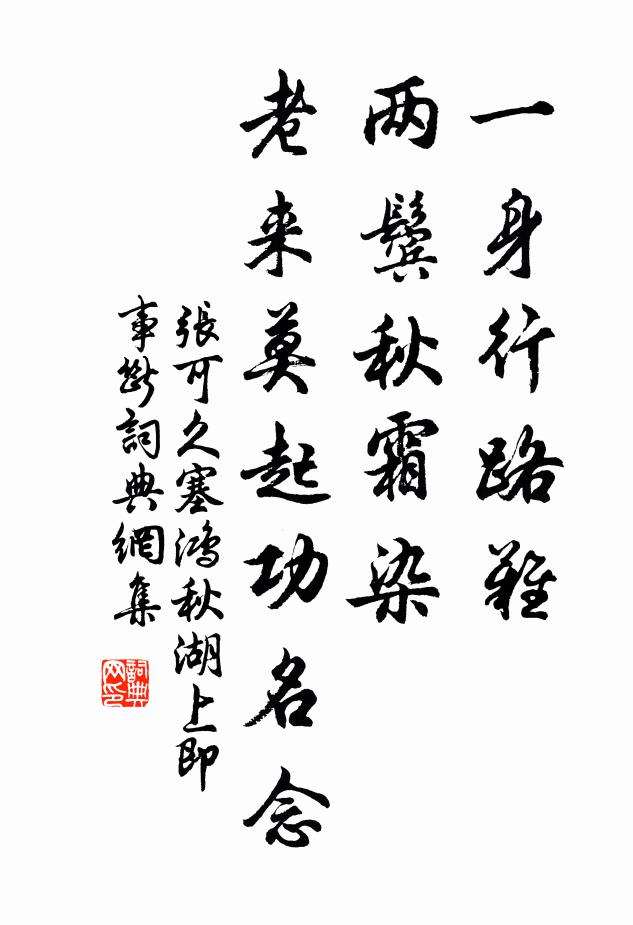 一身行路難
两鬓秋霜染
老来莫起功名念
張可久塞鴻秋湖上即
事斷詞典網集
詞典
网印